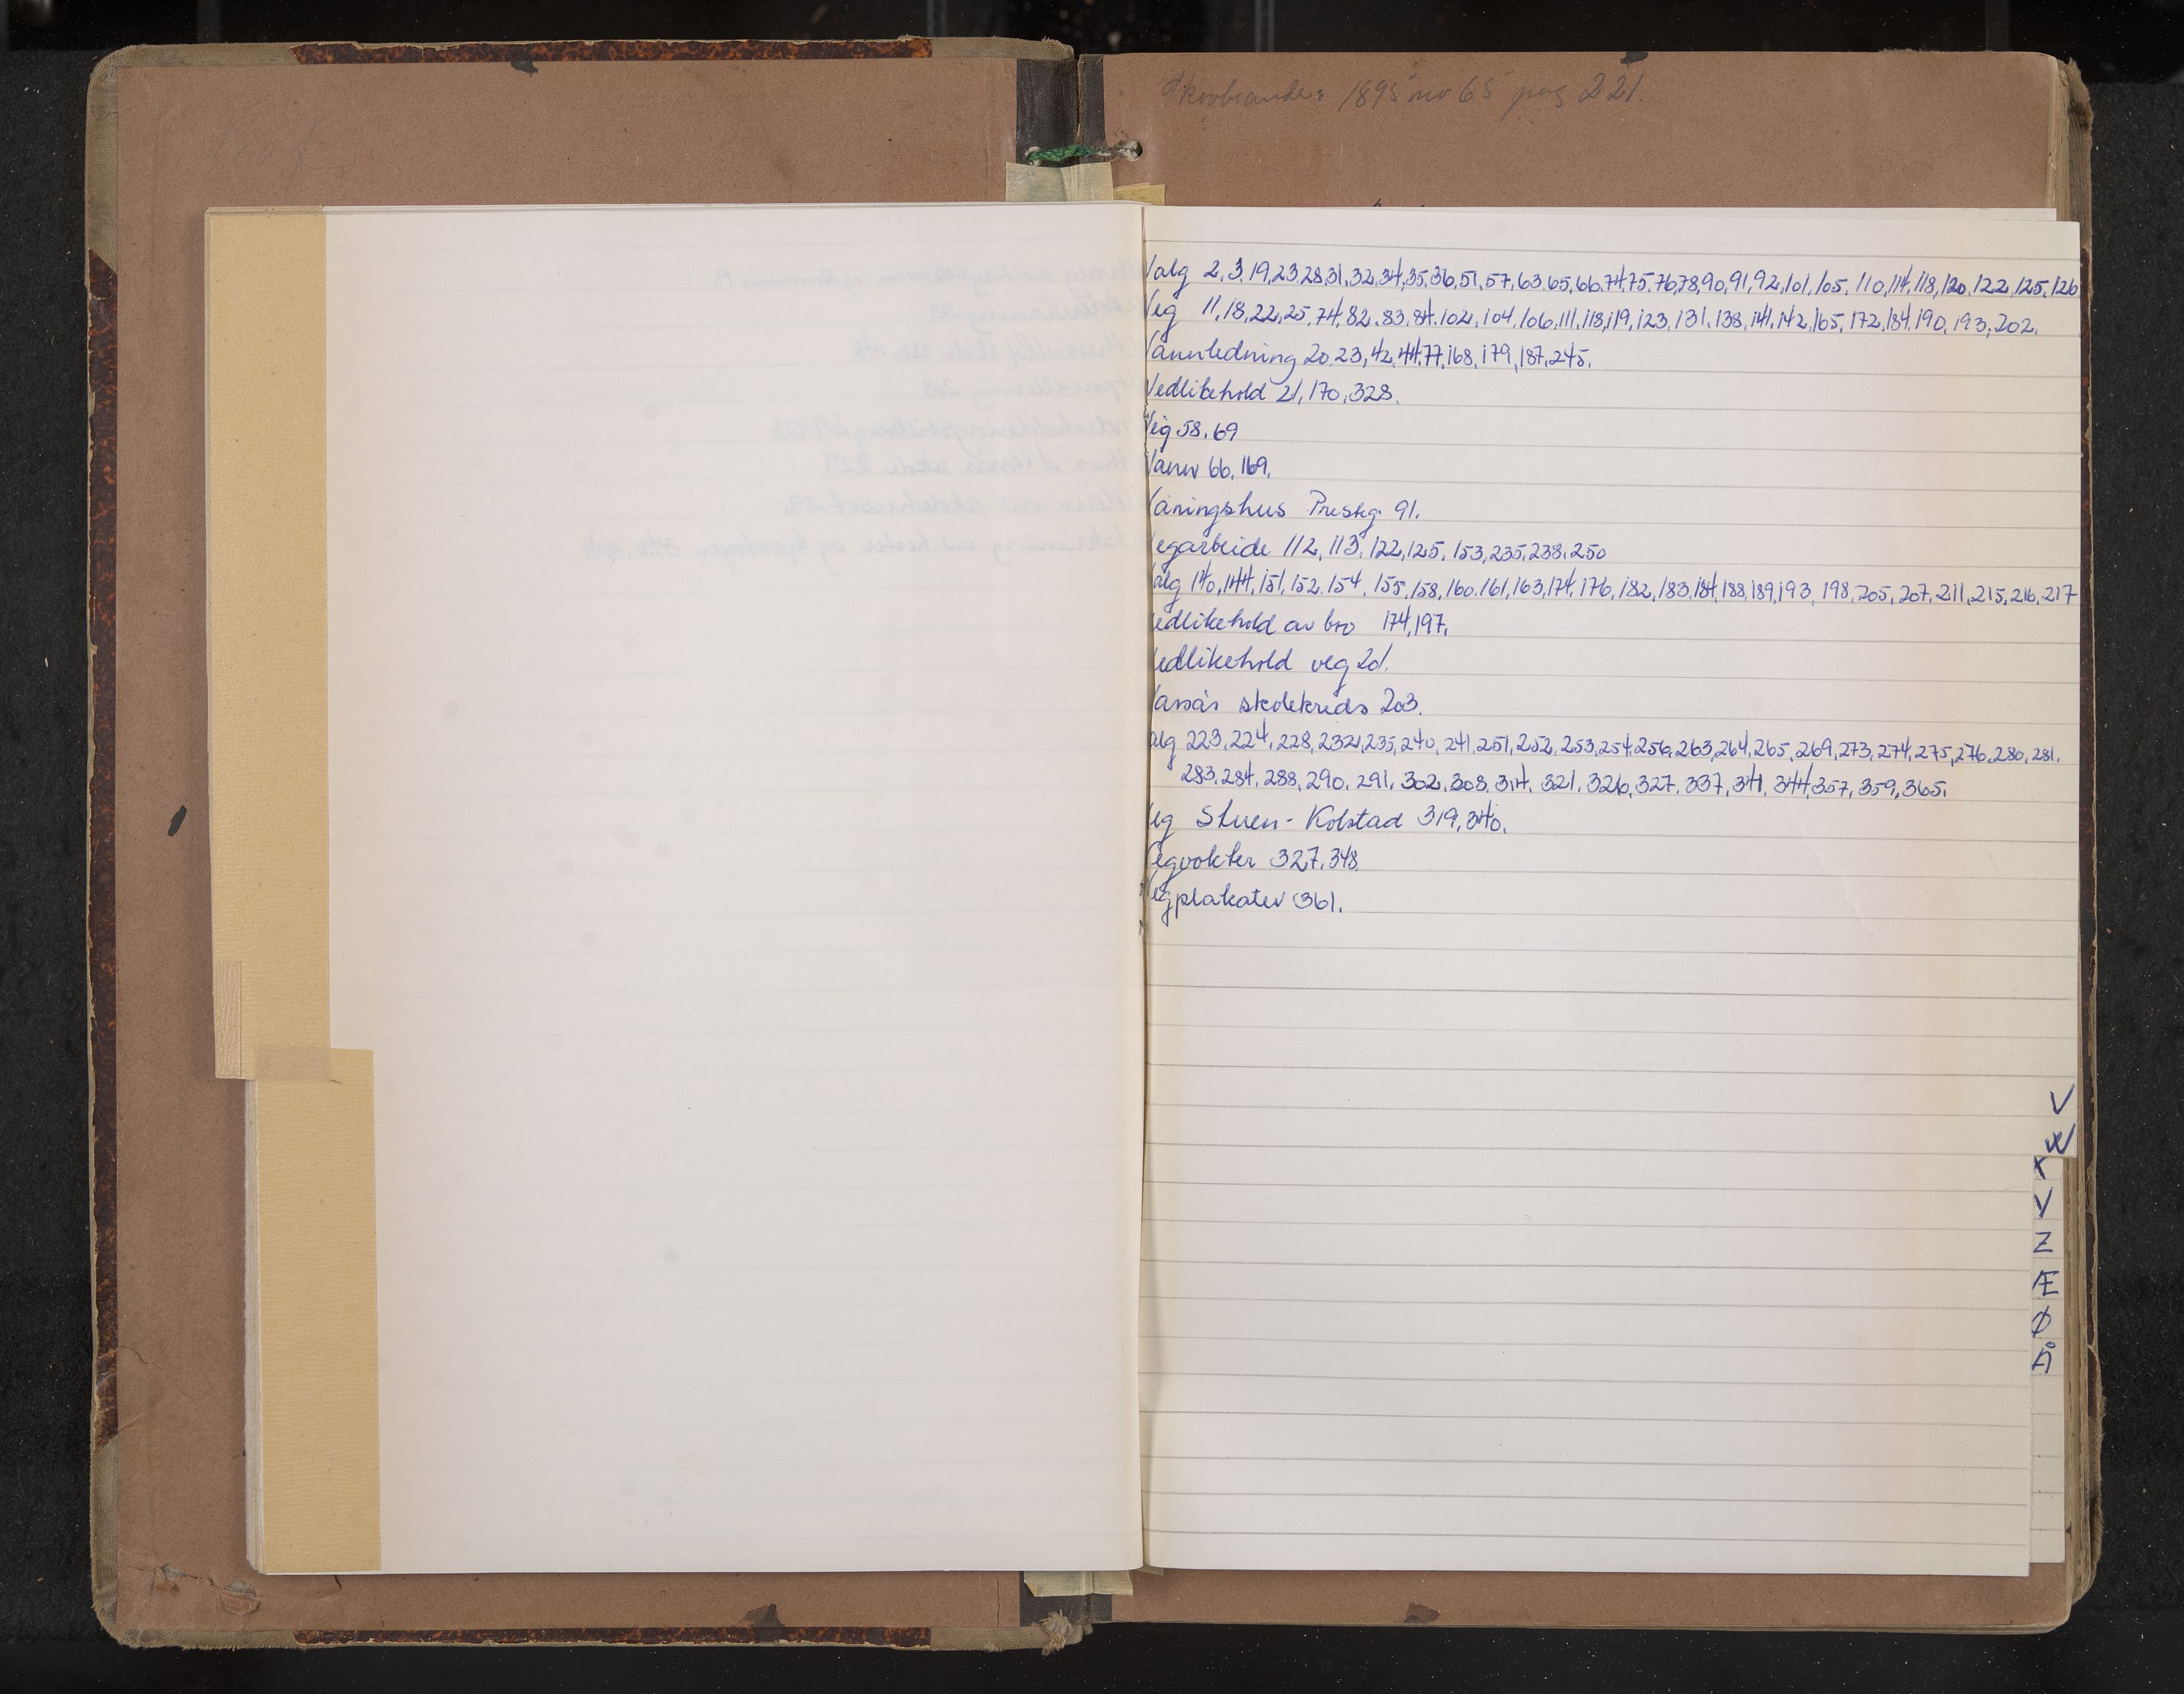 1895 no 65 pag 221.
Valg 2,3,19,23,28,31,32,34,35,36,51,57,63,65,66,74,75,76,78,90,91,92,101,105,110,114,118,120,122,125,126
Veg 11,18,22,25,74,82,83,84,102,104,106,111,118,119,123,131,138,141,142,165,172,184,190,193,202.
Vannledning 20,23,42,44,77,168,179,187,245.
Vedlikehold 21,170,328.
Veg 58,69
Vann 66,169.
Våningshus Prestg. 91.
Vegarbeide 112,113,122,125,153,235,238,250
Valg 140,144,151,152,154,155,158,160,161,163,174,176,182,183,184,188,189,193,198,205,207,211,215,216,217
Vedlikehold av bro 174,197.
Vedlikehold veg 201.
Vassås skolekreds 203.
Valg 223,224,228,232,235,240,241,251,252,253,254,256,263,264,265,269,273,274,275,276,280,281.
283,284,288,290,291,302,308,314,321,326,327,337,341,344,357,359,365.
Veg Stuen-Kolstad 319,340.
Vegvokter 327,348.
Vegplakater 361.
V
W
X
Y
Z
Æ
Ø
Å